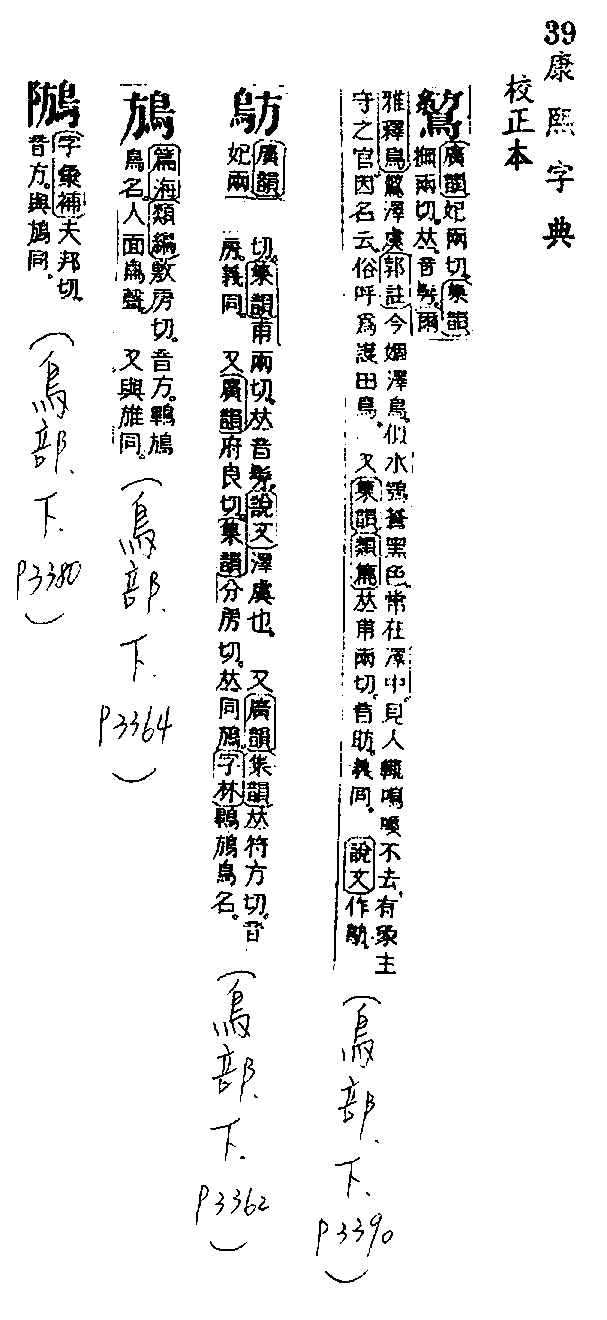 39
康熙字典
校正本
廣韻妃兩切。集韻
撫兩切。𠀤音髣。爾
雅釋鳥鶭澤虞郭註今婟澤鳥。似水鴞蒼黑色常在澤中。見人輒鳴喚不去。有象主
守之官因名云。俗呼爲護田鳥。又集韻類篇𠀤甫兩切。音昉。義同。說文作䲱。
(鳥部.下.P3390)
䲱
廣韻妃兩
切。集韻甫兩切。𠀤音髣。說文澤虞也。又廣韻集韻𠀤符方切。音
房。義同。又廣韻府良切。集韻分房切。𠀤同鴋。字林鷝鴋鳥名。
(鳥部.下.P3362)
鴋
篇海類編敷房切。音方。鷝鴋
鳥名。人面鳥聲。又與䲱同。
(鳥部.下.P3364)
字彙補夫邦切。
音方。與鴋同。
(鳥部.下.P3380)